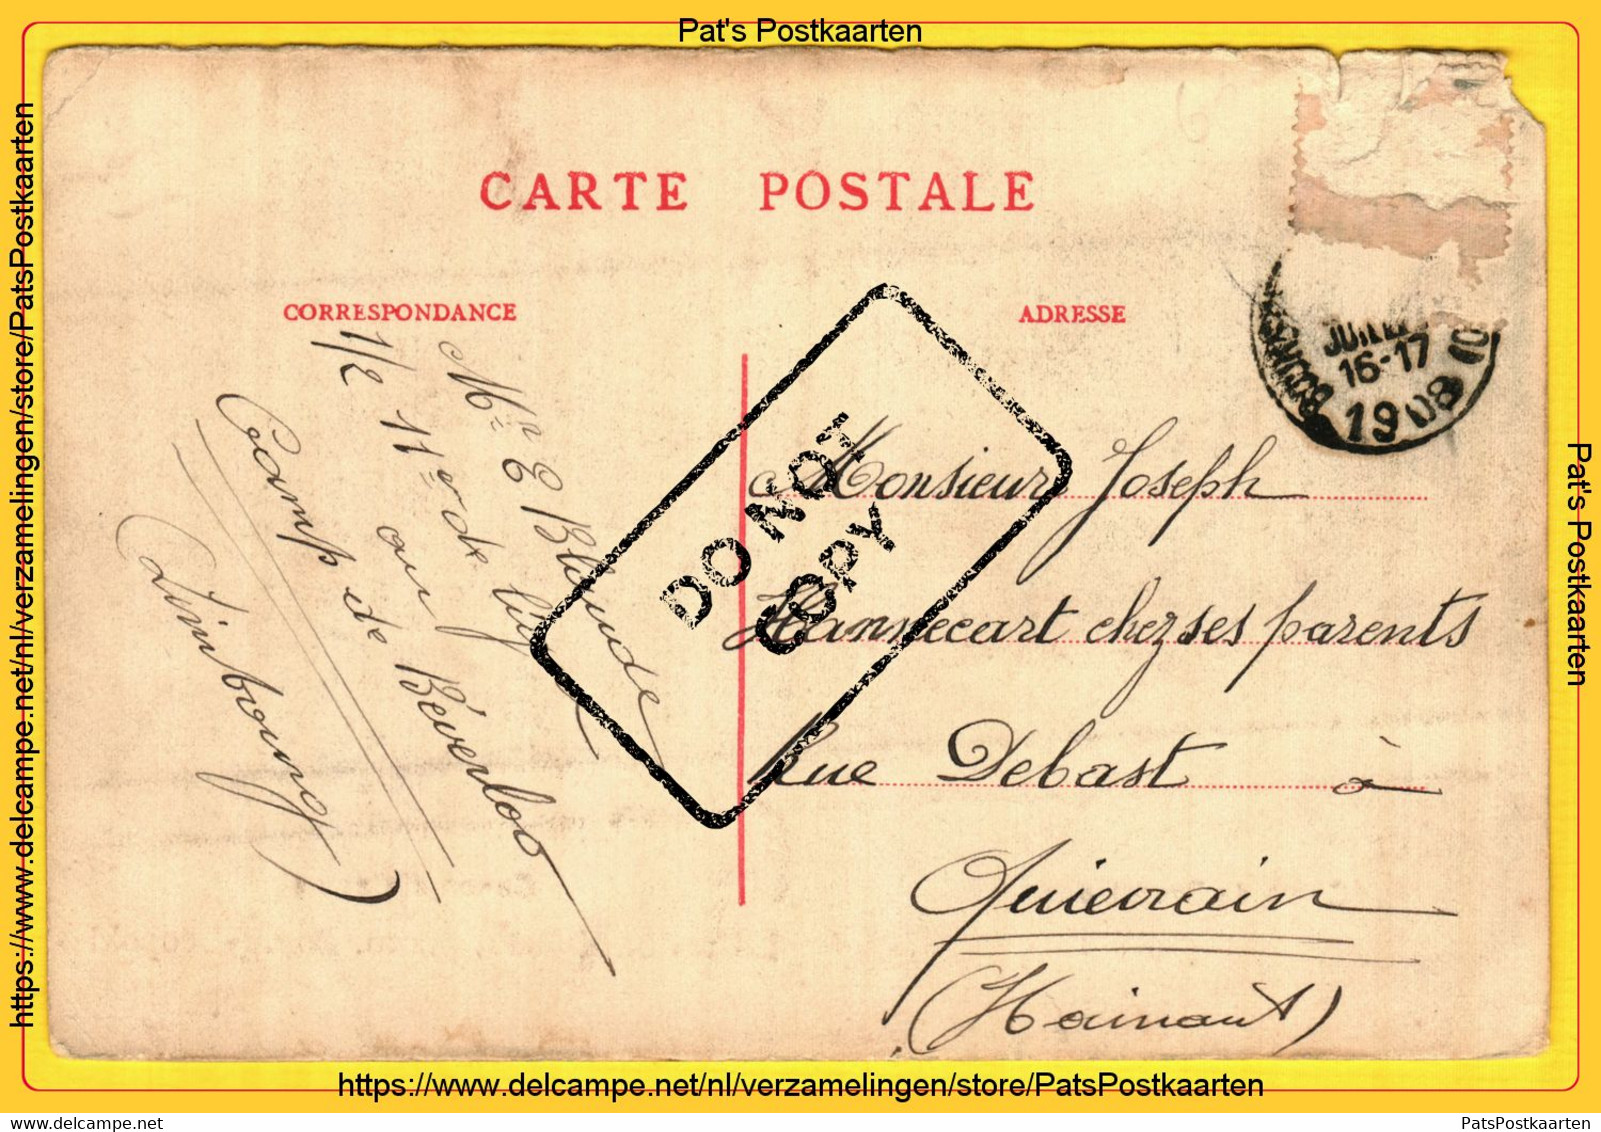 Pat's Postkaarten
https://www.delcampe.net/nl/verzamelingen/store/PatsPostkaarten
CARTE POSTALE
CORRESPONDANCE
ADRESSE
16-17
1908
Mr E Blonde
1/2 11e de
au
Camp de Béverloo
Limbourg
DO NOT
COPY
Monsieur Joseph
Hannecart chez ses parents
Rue Debast à
Quievrain
(Hainaut)
Pat's Postkaarten
https://www.delcampe.net/nl/verzamelingen/store/PatsPostkaarten
delcampe.net
PatsPostkaarten